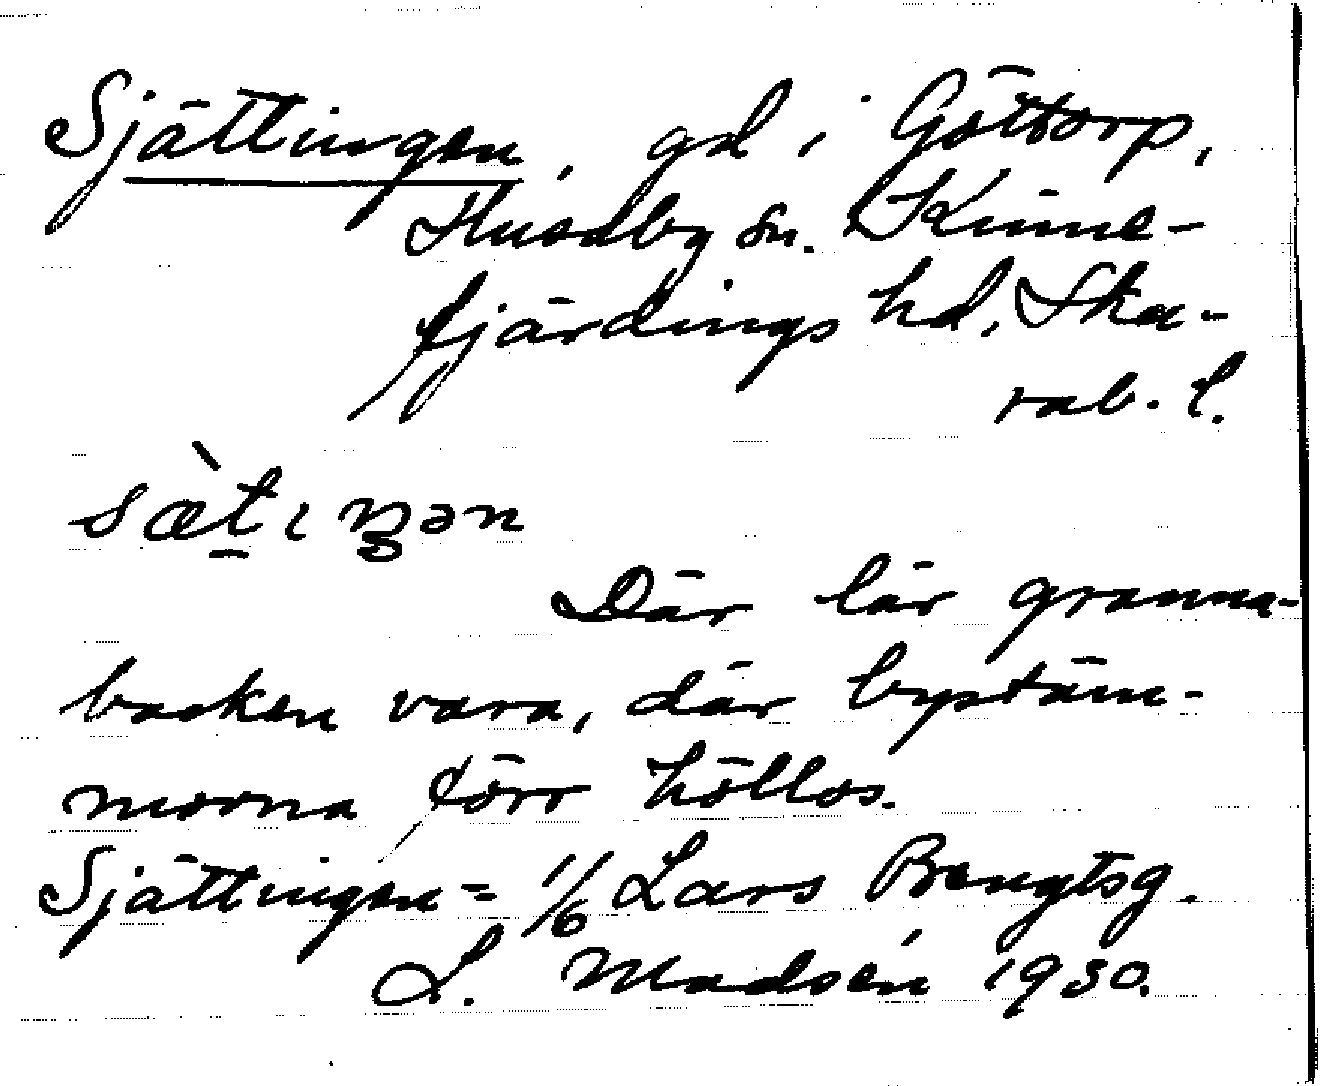 Sjättingen, gd i Göttorp,
Husaby sn. Kinne-
fjärdings hd, Ska-
rab. l.
sæ̀tıŋən
Där lär granna-
backen vara, där bystäm-
morna förr höllos.
Sjättingen = 1/6 Lars Bengtsg.
L. Madsén 1930.